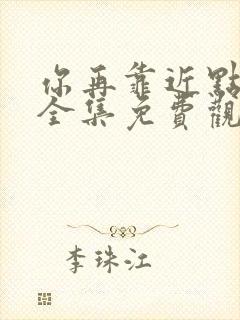 你再靠近點
全集免費觀
李珠江